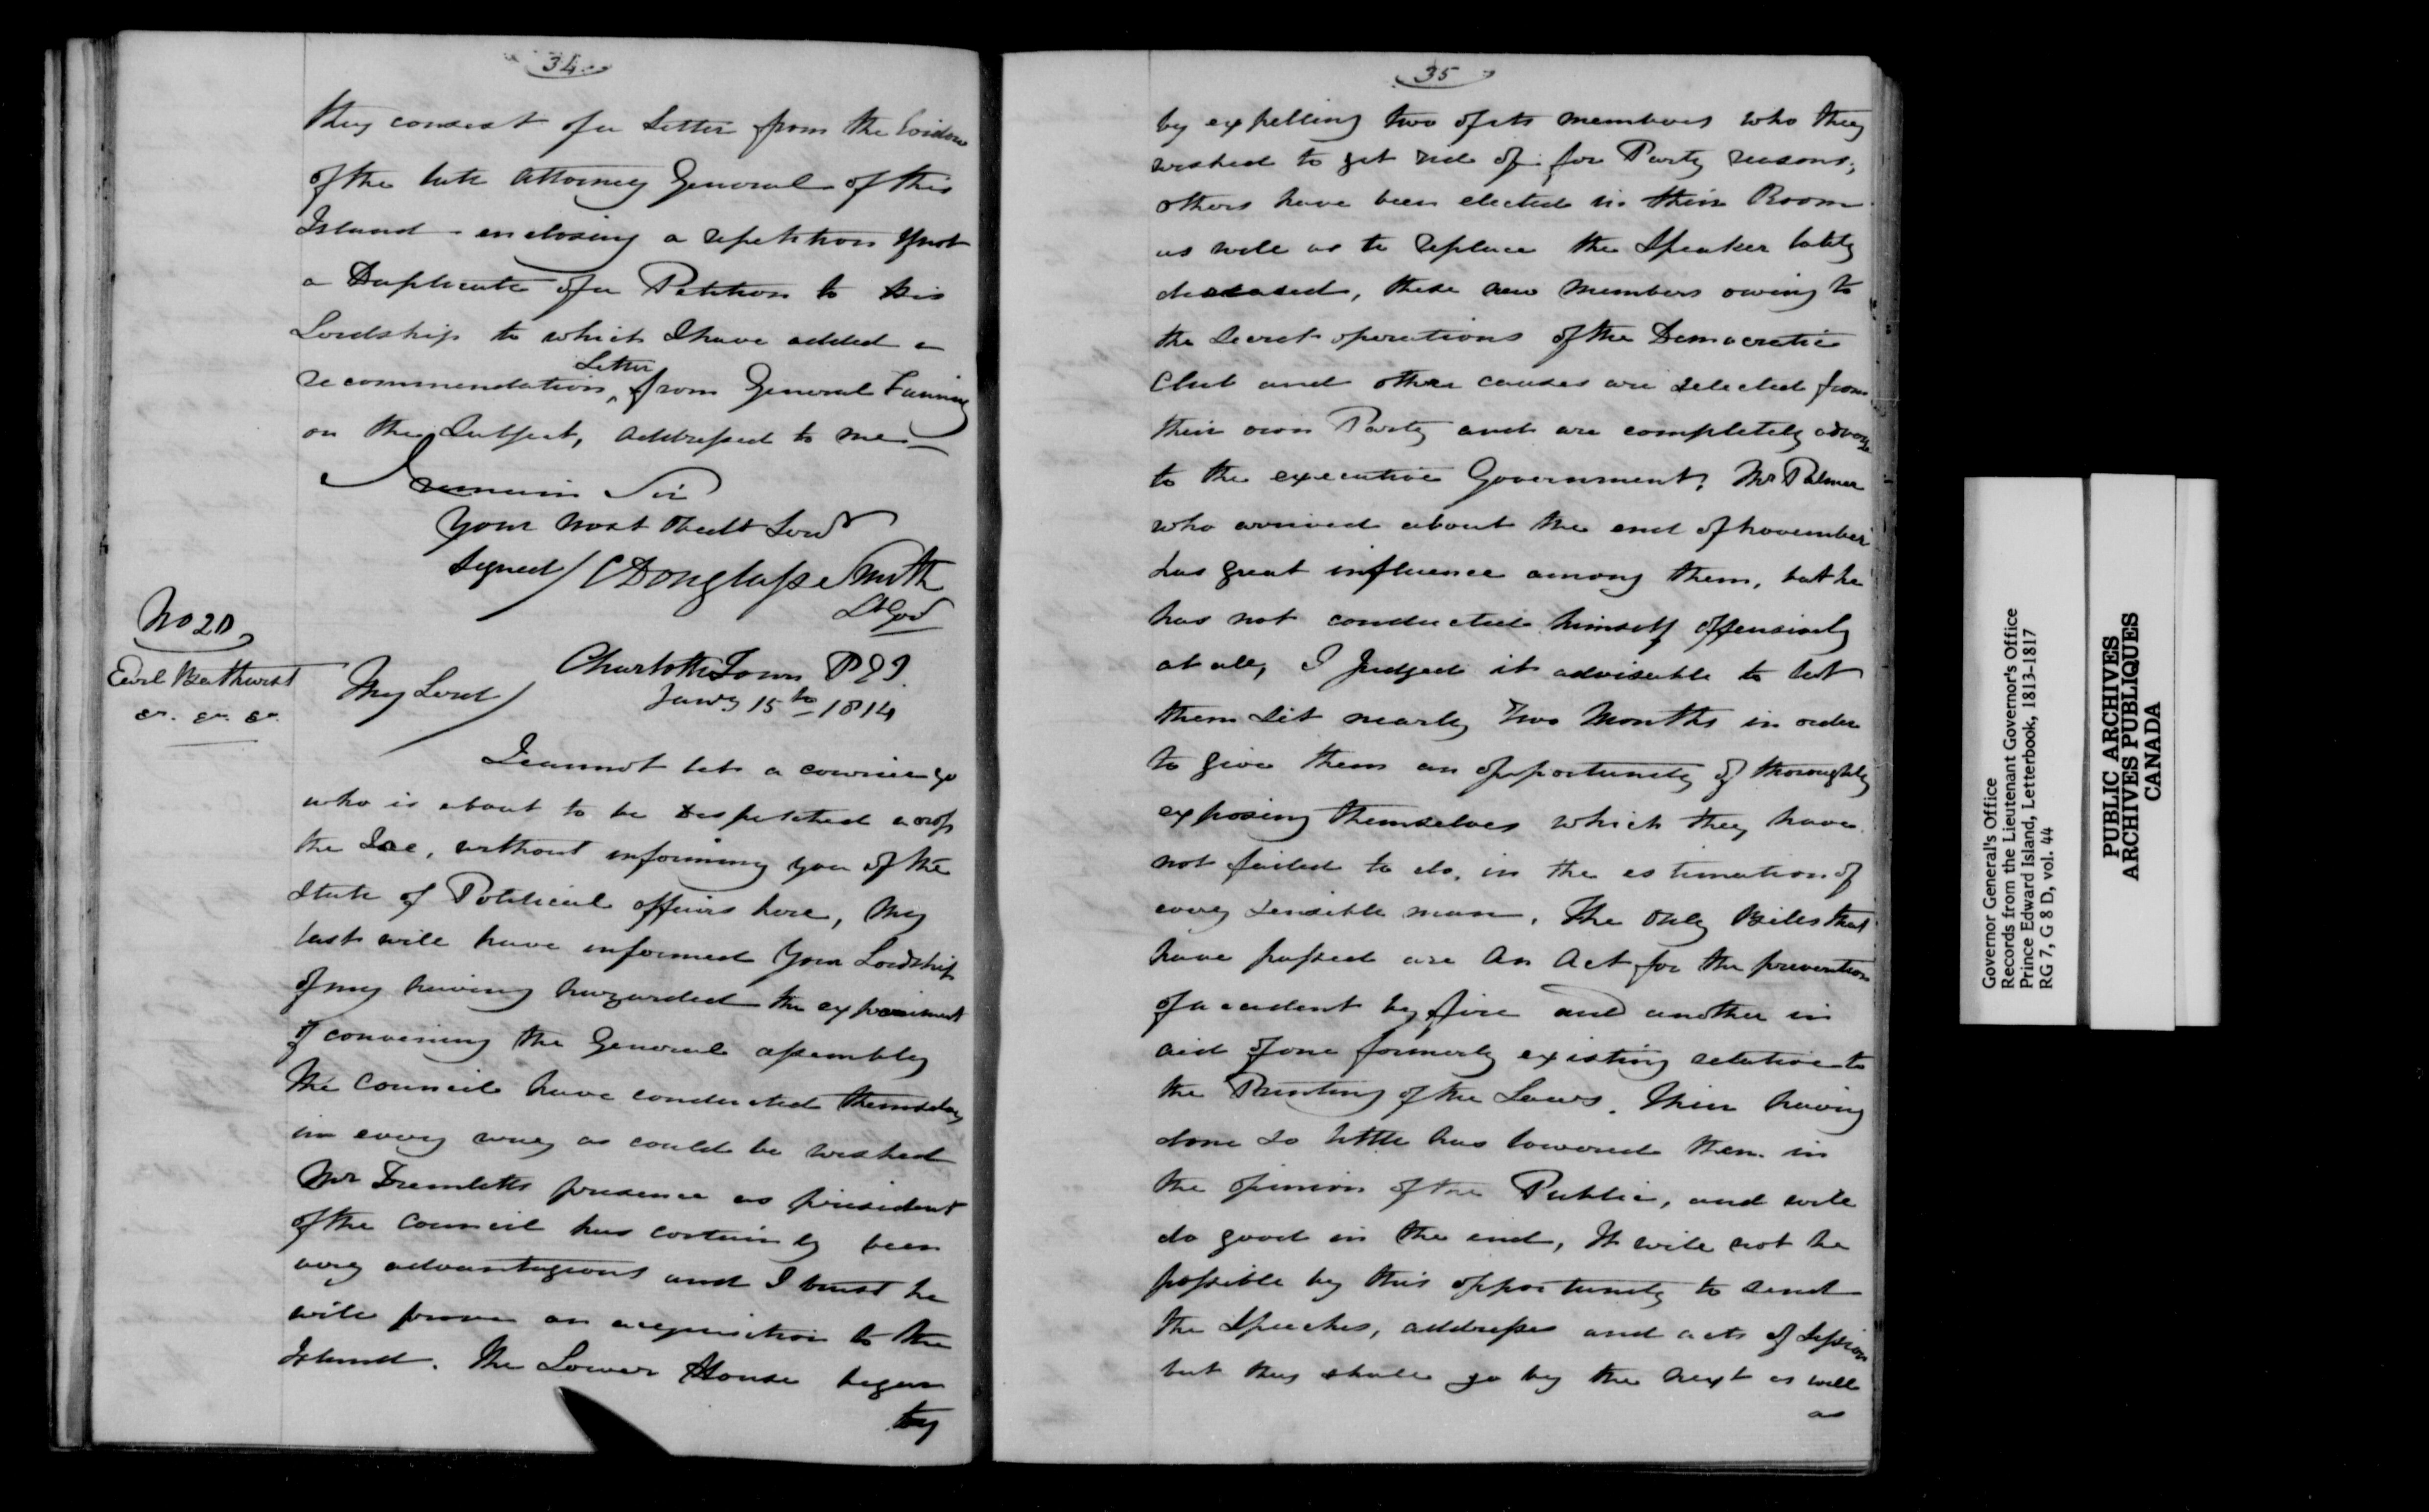 34
they consist of a Letter from the Widow
of the late Attorney General of this
Island - enclosing a repetition if not
a Duplicate of a Petition to His
Lordship to which I have added a
Letter
recommendation, from General Fanning
on the Subject, addressed to me
I remain Sir
Your most Obedt Servt
Signed / C Douglass Smith
Lt Govr
No 20
Earl Bathurst
&c. &c. &c.
Charlotte Town P E I.
Jany 15th 1814
My Lord /
I cannot let a courier go
who is about to be despatched across
the Ice, without informing you of the
State of Political affairs here, My
last will have informed Your Lordship
of my having hazarded the experiment
of convening the General assembly
The Council have conducted themselves
in every way as could be wished
Mr Townletts presence as president
of the Council has certainly been
very advantageous and I trust he
will prove an acquisition to the
Island. The Lower House began
by
35
by expelling two of its members who they
wished to get rid of for Party reasons;
others have been elected in their Room
as well as to replace the Speaker lately
deceased, these new members owing to
the Secret operations of the Democratic
Club and other causes are selected from
their own Party and are completely adverse
to the executive Government. Mr Palmer
who arrived about the end of November
has great influence among them, but he
has not conducted himself offensively
at all, I judged it advisable to let
them sit nearly two Months in order
to give them an opportunity of thoroughly
exposing themselves which they have
not failed to do, in the estimation of
every sensible man. The only Bills that
have passed are An Act for the prevention
of accident by fire and another in
aid of one formerly existing relative to
the Printing of the Laws. Their having
done so little has lowered them in
the opinion of the Public, and will
do good in the end, It will not be
possible by this opportunity to send
the Speeches, addresses and acts of Session
but they shall go by the next as well
as
Governor General's Office
Records from the Lieutenant Governor's Office
Prince Edward Island, Letterbook, 1813-1817
RG 7, G 8 D, vol. 44
PUBLIC ARCHIVES
ARCHIVES PUBLIQUES
CANADA